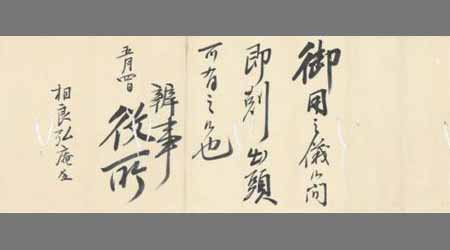 御用之儀候間
即刻出頭
可有之候也
辨事
役所
五月四日
相良弘庵殿